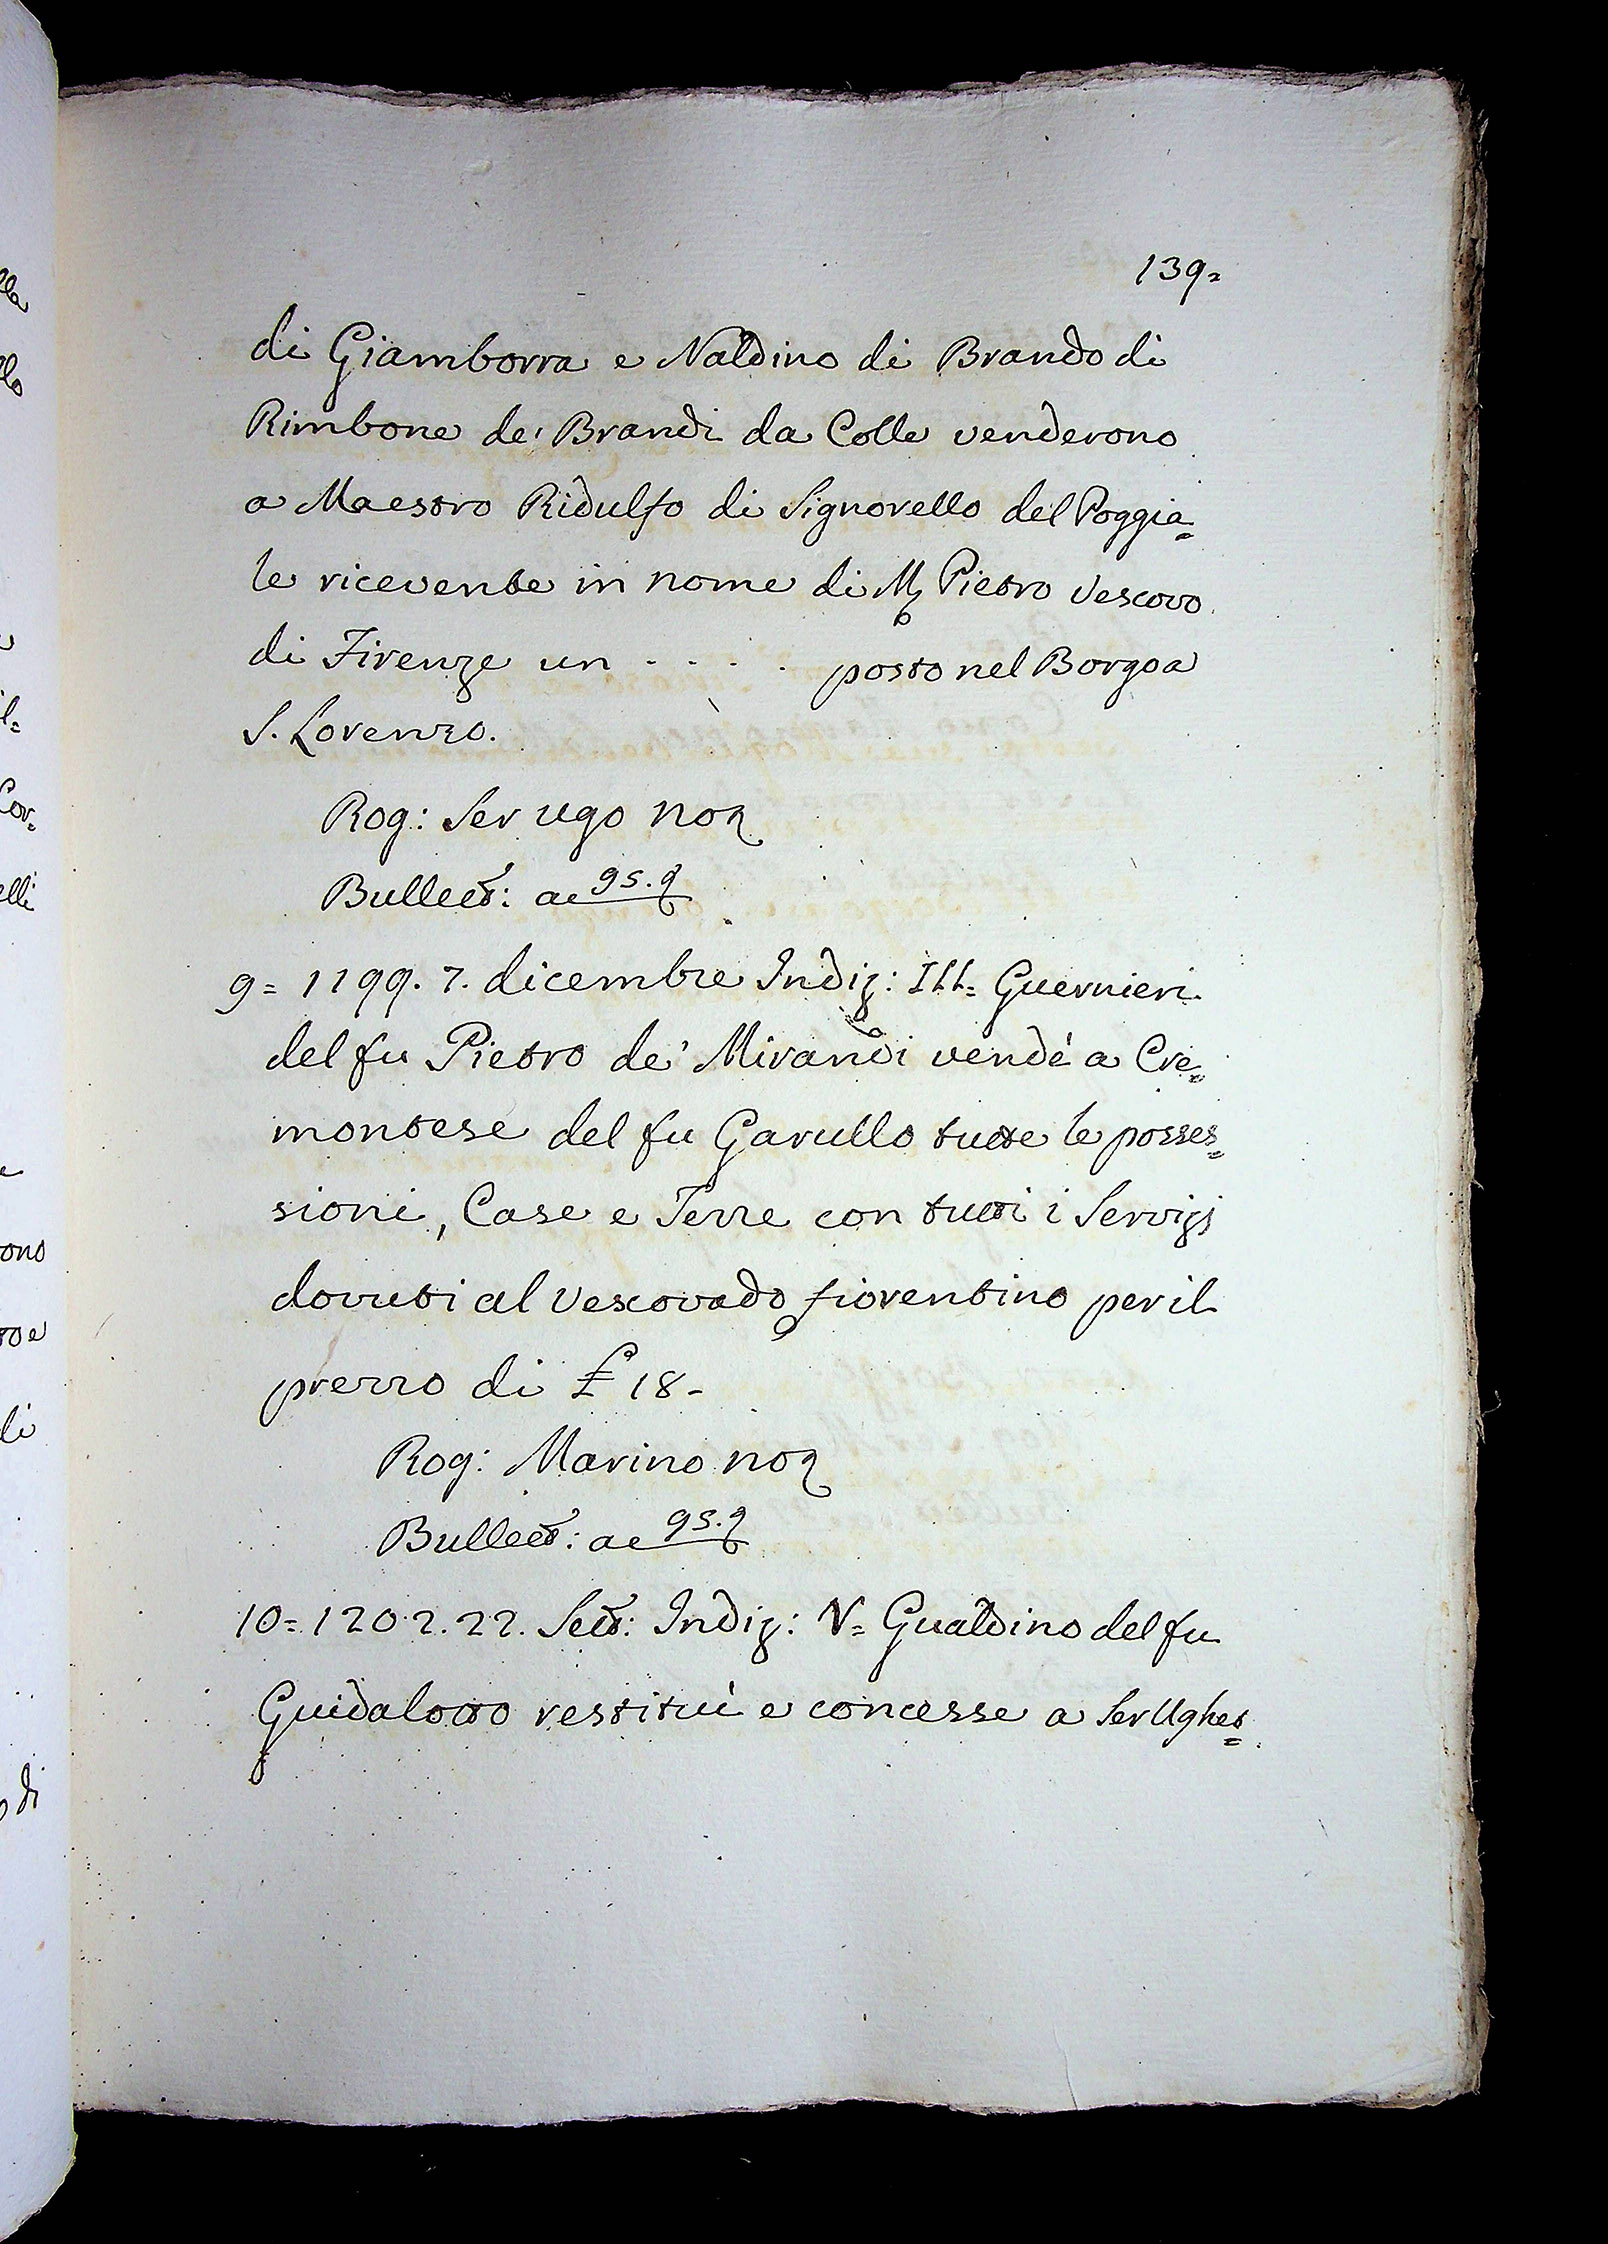 139=
di Giamborra e Naldino di Brando di
Rimbone de' Brandi da Colle venderono
a Maestro Ridulfo di Signorello del Poggia=
le ricevente in nome di M Pietro Vescovo
di Firenze un . . . . posto nel Borgo a
S. Lorenzo.
Rog: Ser Ugo no
Bullett: a
9= 1199. 7. dicembre Indiz: III= Guernieri
del fu Pietro de' Mirandi vendè a Cre=
montese del fu Garullo tutte le posses=
sioni, Case e Terre con tutti i Servizj
dovuti al Vescovado fiorentino per il
prezzo di £ 18-
Rog: Marino no
Bullett: a
10= 1202. 22. Sett: Indiz: V= Gualdino del fu
Guidalotto restituì e concesse a Ser Ughet=